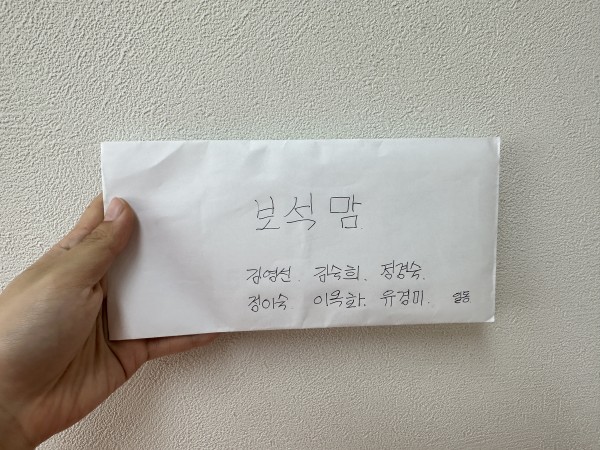 보석 맘
김영선. 김숙희. 정경숙.
정이숙 이목화. 유경미. 일동